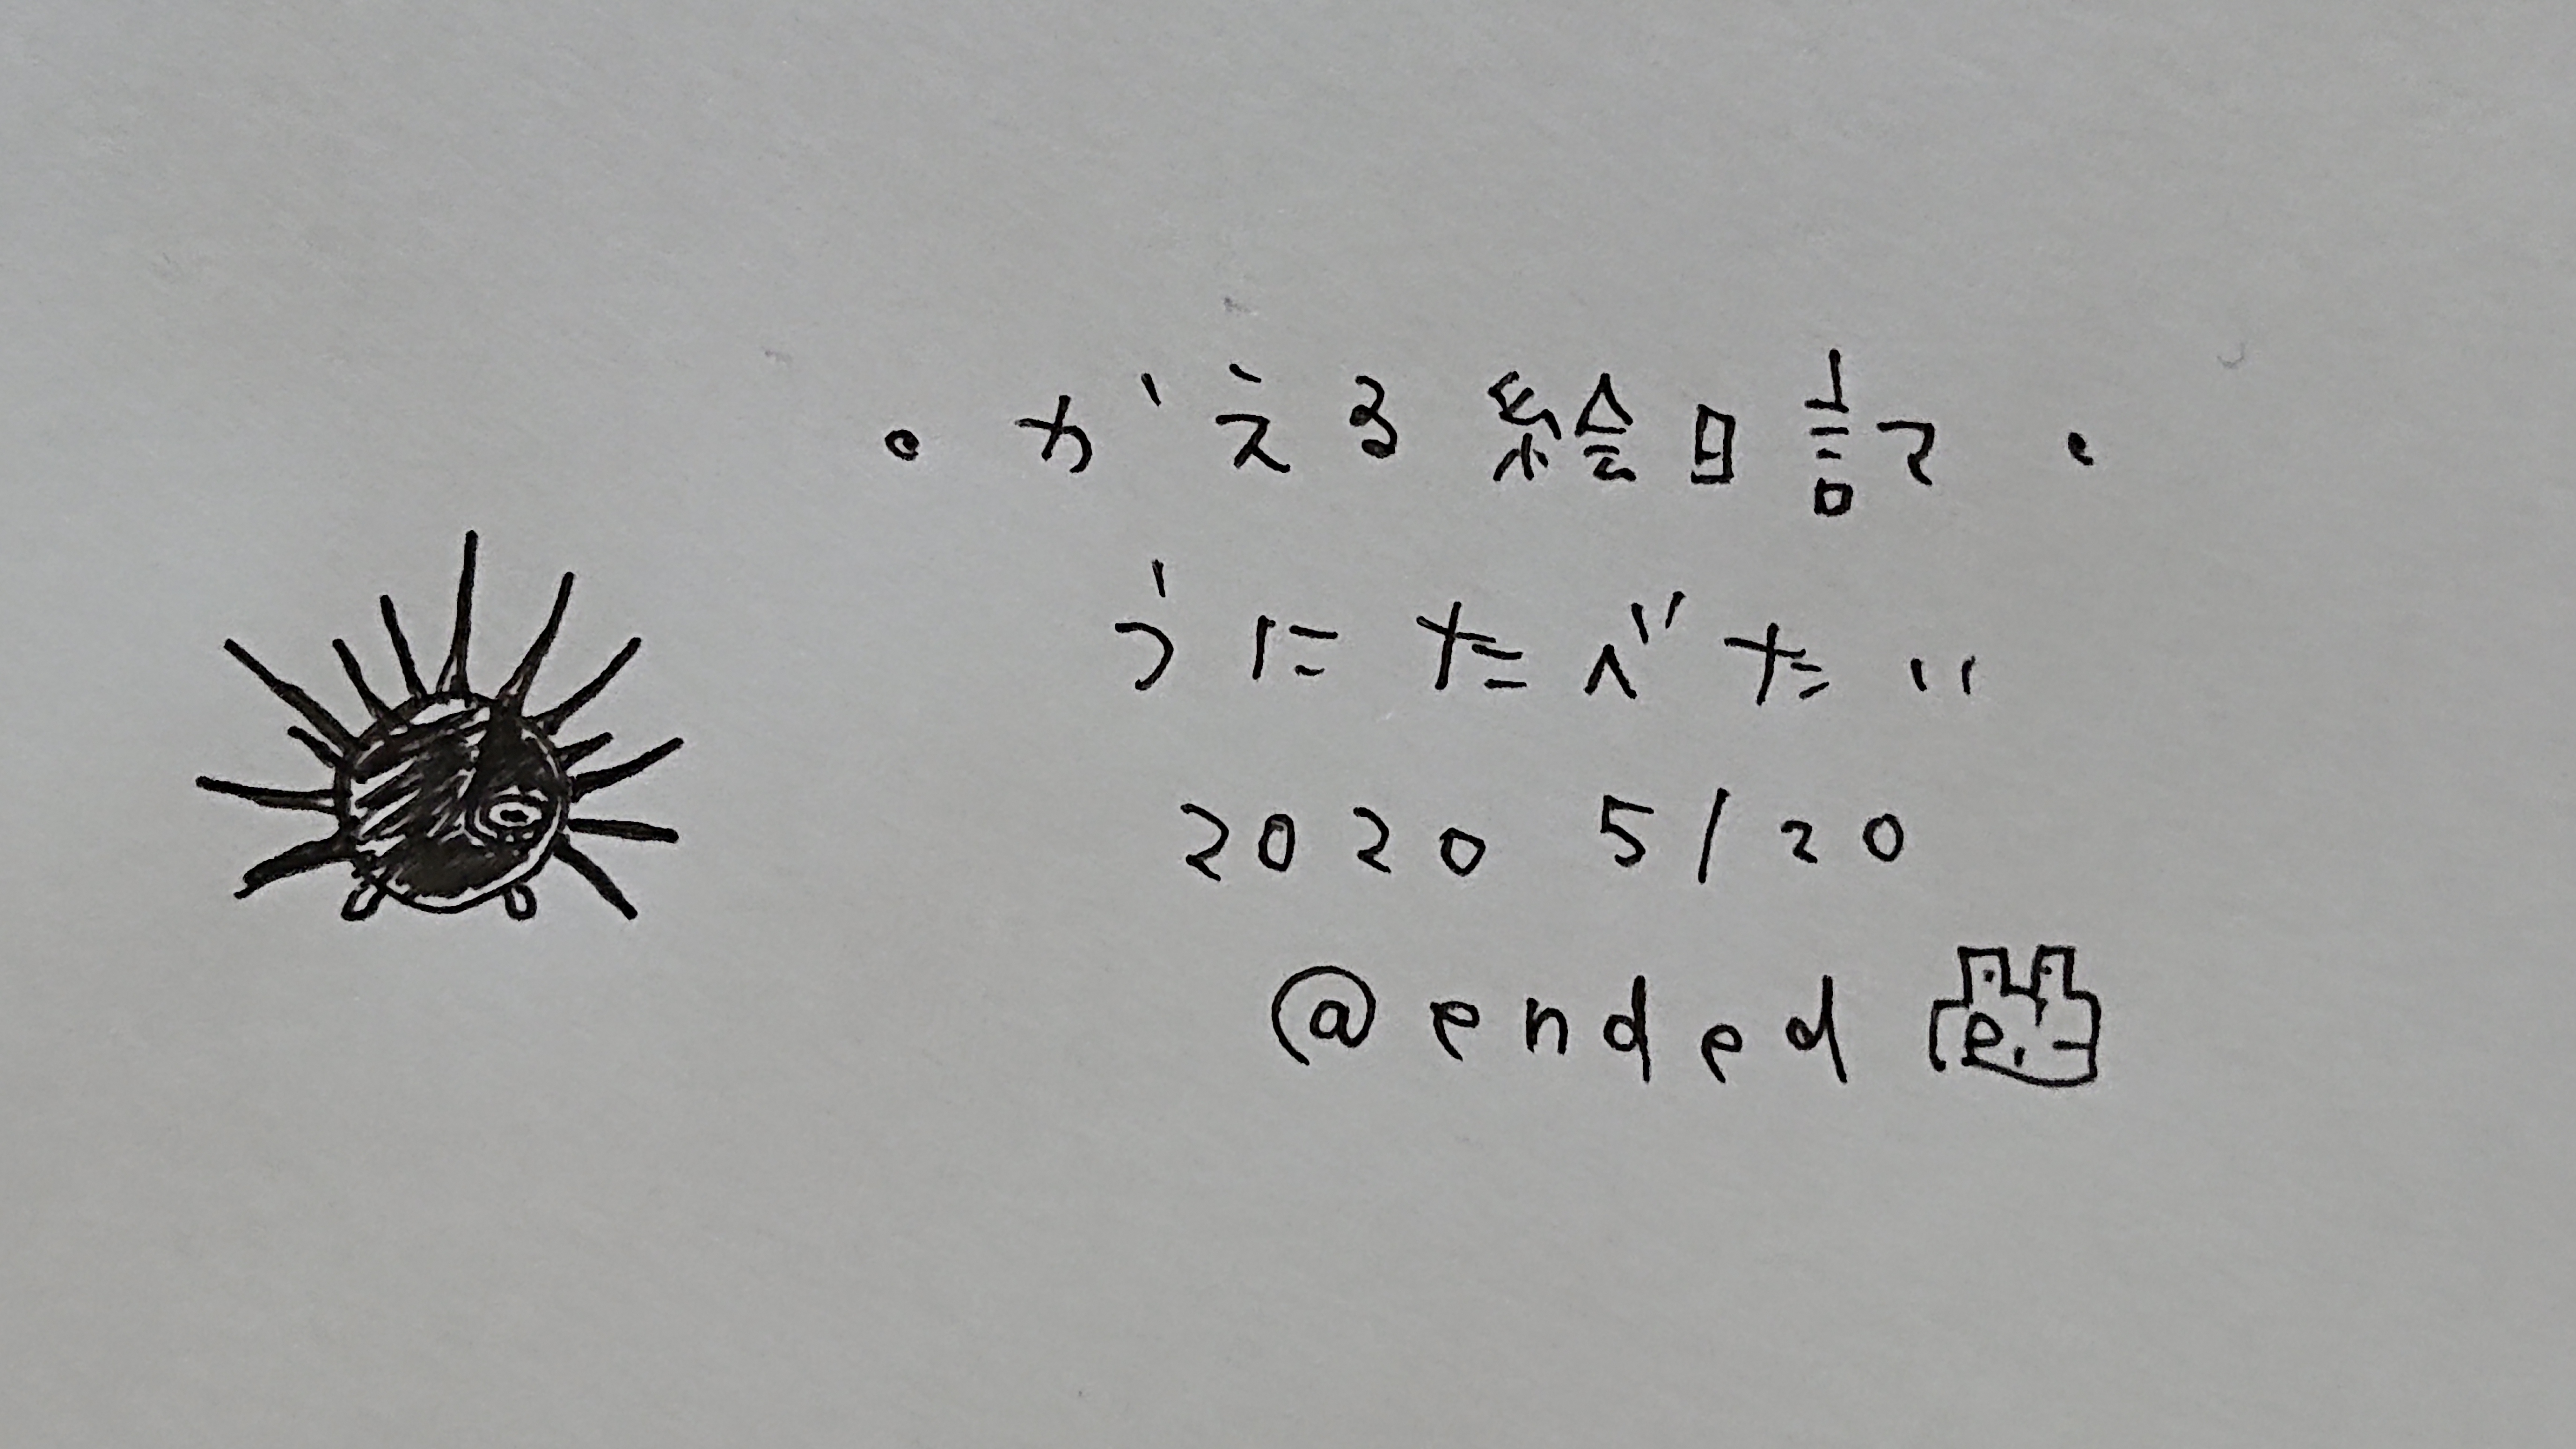 ・かえる絵日記・
うにたべたい
2020 5/20
@ended